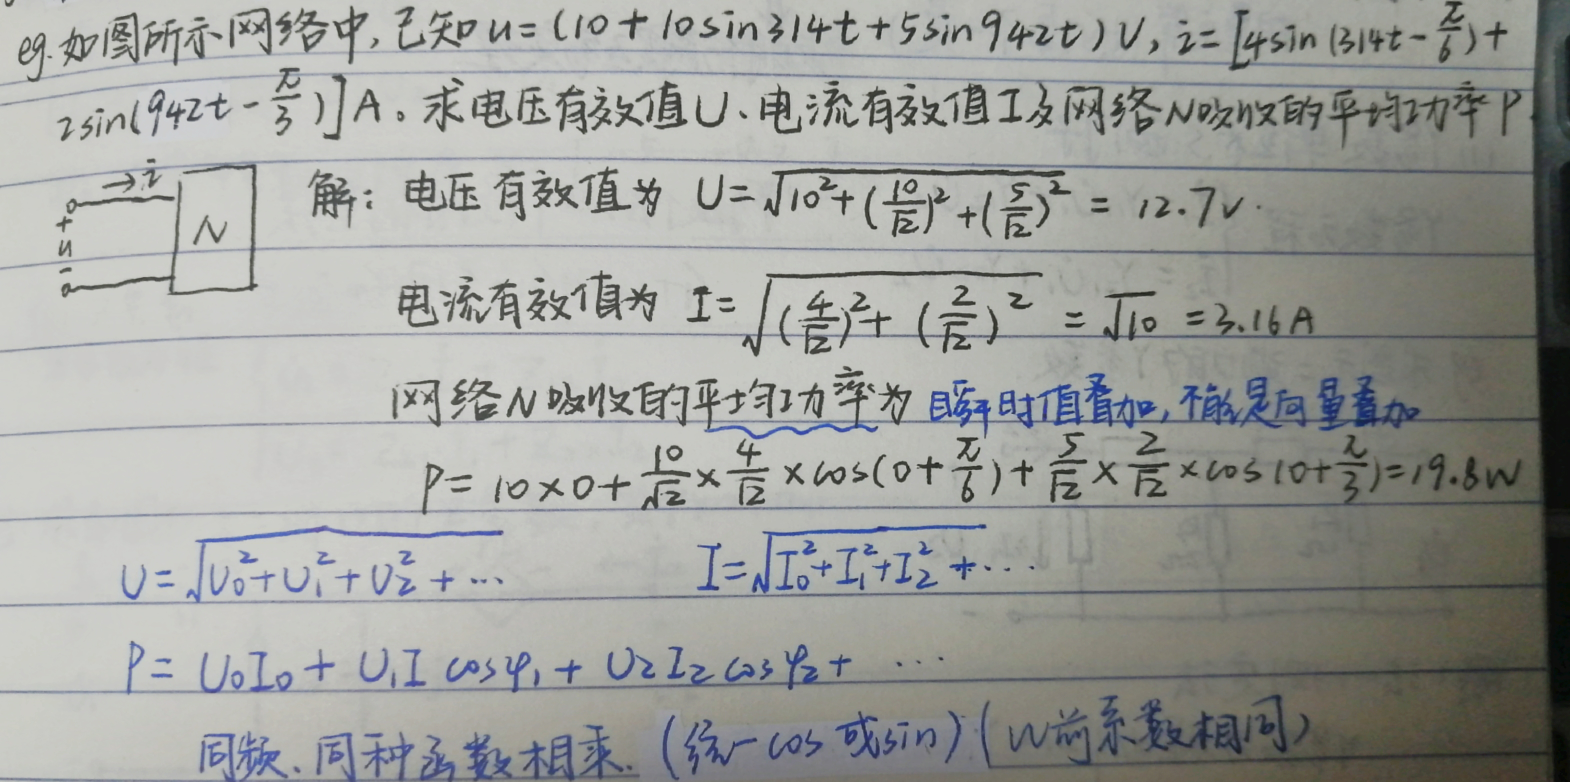 eg.如图所示网络中,已知u=(10+10sin314t+5sin942t)V,i=[4sin(314t-π/6)+
2sin(942t-π/3)]A。求电压有效值U、电流有效值I及网络N吸收的平均功率P.
→i
+
u
-
N
解:电压有效值为 U=√(10²+(10/√2)²+(5/√2)²) = 12.7V.
电流有效值为 I=√((4/√2)²+(2/√2)²) =√10 =3.16A
网络N吸收的平均功率为 瞬时值叠加,不能是向量叠加
P= 10×0+10/√2×4/√2×cos(0+π/6)+5/√2×2/√2×cos(0+π/3)=19.8W
U=√(U₀²+U₁²+U₂²+··· I=√(I₀²+I₁²+I₂²+···
P= U₀I₀+U₁I cosφ₁+U₂I₂cosφ₂+ ···
同频、同种函数相乘.(统一cos或sin)(W前系数相同)